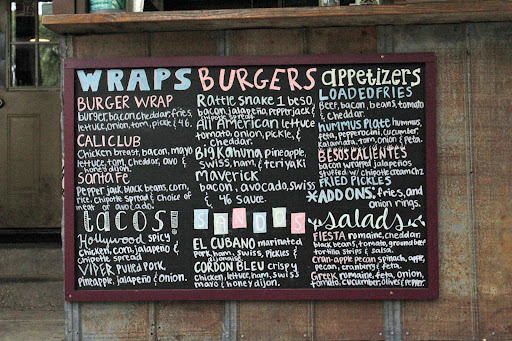 WRAPS
BURGER WRAP
burger, bacon, cheddar, fries,
lettuce, onion, tom, pickle & 46.
CALI CLUB
Chicken breast, bacon, mayo
lettuce, tom, cheddar, avo &
honey dijon.
SANTA FE
Pepper jack, black beans, corn,
rice, Chipotle spread & choice of
meat or avocado.
tacos!
Hollywood spicy
chicken, corn, jalapeño &
chipotle spread
VIPER Pulled Pork,
Pineapple, jalapeño & onion.
BURGERS
Rattle snake 1 beso,
bacon, jalapeño, pepperjack &
chipotle spread
All American lett,
tomato, onion, pickle, &
cheddar.
Big Kahuna pineapple,
swiss, ham, & teriyaki
maverick
bacon, avocado, swiss
& 46 sauce.
SANDOS
EL CUBANO marinated
Pork, ham, swiss, pickles &
dijonaise
CORDON BLEU crispy
chicken, lettuce, ham, swiss
mayo & honey dijon.
appetizers
LOADED FRIES
Beef, bacon, beans, tomato
& cheddar.
HUMMUS PLATE hummus,
feta, pepperocini, cucumber,
kalamata, tom, onion & peta.
BESOS CALIENTES
bacon wrapped jalapeños
stuffed w/ chipotle cream chz
FRIED PICKLES
*ADD ONS: fries, and
onion rings.
salads
FIESTA romaine, cheddar
black beans, tomato, ground beef
tortilla strips & salsa.
Cran-apple pecan spinach, apple,
pecan, cranberry & feta.
Greek romaine, feta, onion,
tomato, cucumber, olives & pepper.